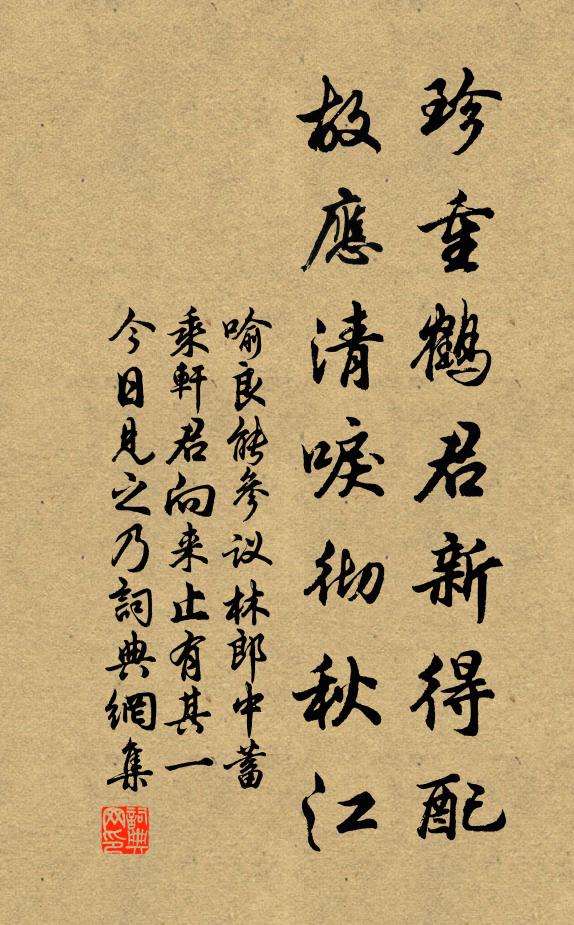 珍重鶴君新得配
故應清唳彻秋江
喻良能參议林郎中蓄
乘軒君向来止有其一
今日見之乃詞典網集
詞典网印